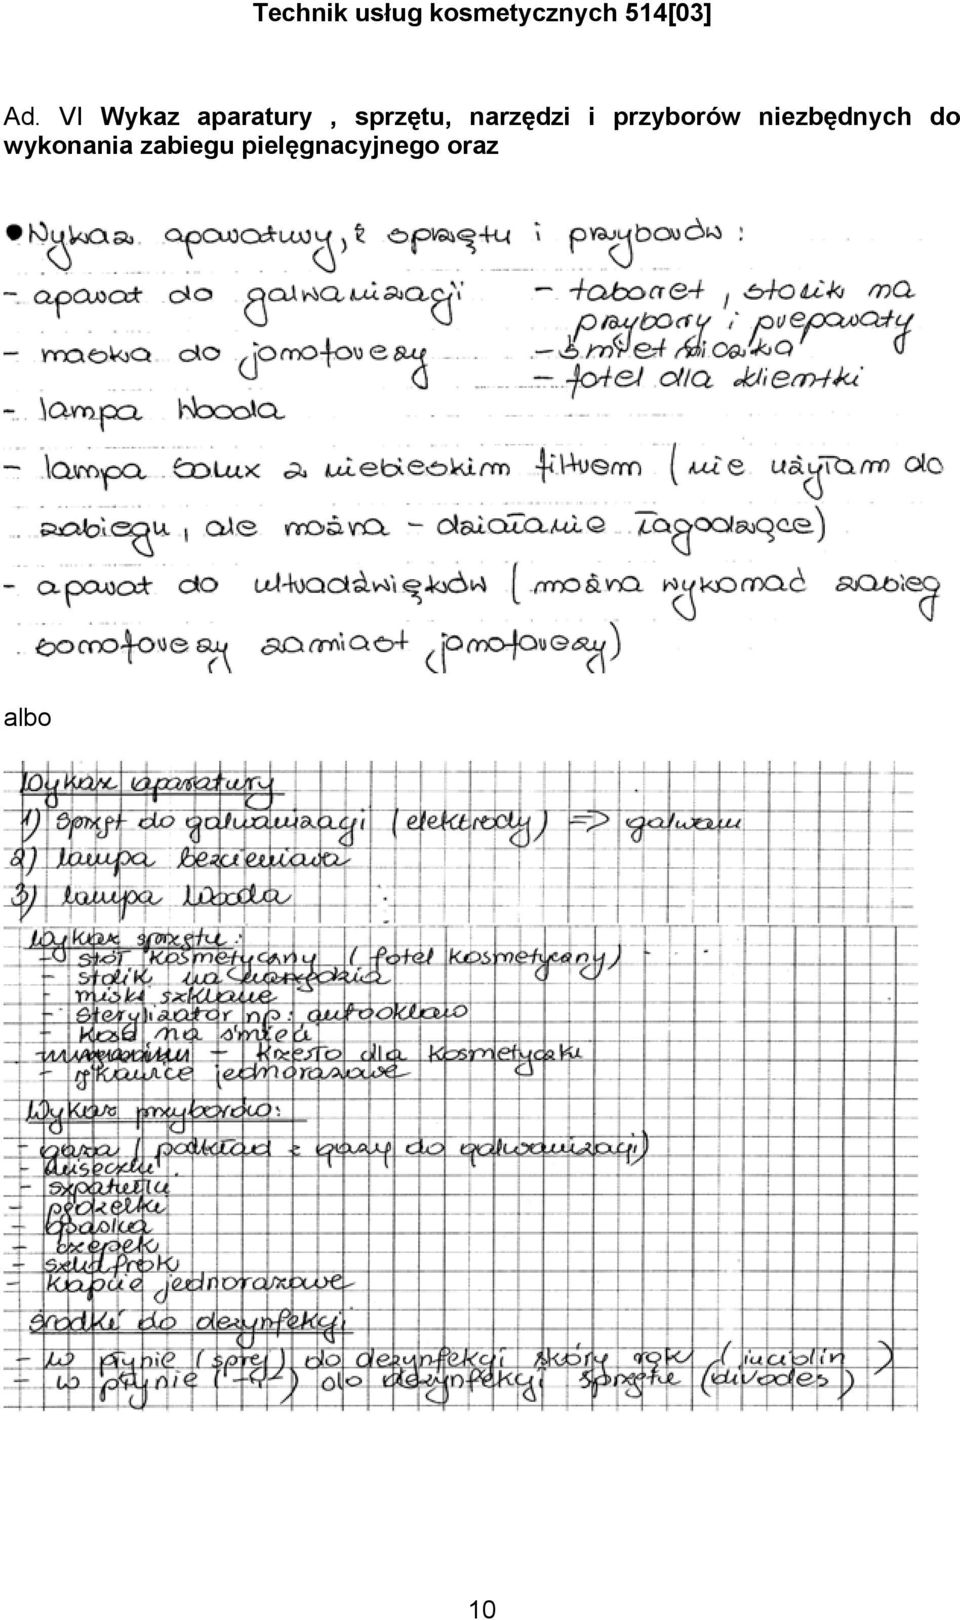 Technik usług kosmetycznych 514[03]
Ad. VI Wykaz aparatury , sprzętu, narzędzi i przyborów niezbędnych do
wykonania zabiegu pielęgnacyjnego oraz
•Wykaz aparatury, sprzętu i przyborów:
- aparat do galwanizacji
- maska do jonoforezy
- taboret, stolik na
przybory i preparaty
- śmietniczka
- fotel dla klientki
- lampa Wooda
- lampa Solux z niebieskim filtrem (nie użyłam do
zabiegu, ale można - działanie łagodzące)
- aparat do ultradźwięków (można wykonać zabieg
sonoforezy zamiast jonoforezy)
albo
Wykaz aparatury
1) Sprzęt do galwanizacji (elektrody) => galwan
2) lampa bezcieniowa
3) lampa Wooda
Wykaz sprzętu:
- stół kosmetyczny (fotel kosmetyczny)
- stolik na
- miski szklane
- sterylizator np: autoklaw
- kosz na śmieci
- krzesło dla kosmetyczki
- rękawice jednorazowe
Wykaz przyborów:
- gaza (podkład z gazy do galwanizacji)
- szpatułki
- pędzelki
- opaska
- czepek
- szlafrok
- kapcie jednorazowe
środki do dezynfekcji
- w płynie (sprej) do dezynfekcji skóry rąk
- w płynie (-"-) do dezynfekcji sprzętu
10